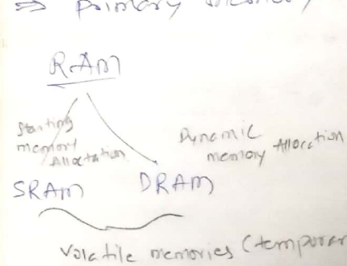 ⇒ Primary memory
RAM
Starting
memory
Allocation
Dynamic
memory Allocation
SRAM
DRAM
Volatile memories (temporar